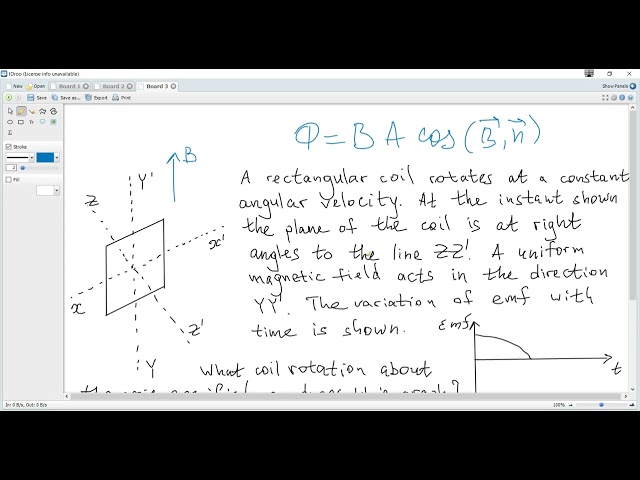 IDroo (License info unavailable)
New Open Board 1 Board 2 Board 3 Show Panels
Save Save as... Export Print
Φ = B A cos(B, n)
Stroke
2
Fill
B
Y'
Z
x'
x
Z'
Y
A rectangular coil rotates at a constant
angular velocity. At the instant shown
the plane of the coil is at right
angles to the line ZZ'. A uniform
magnetic field acts in the direction
YY'. The variation of emf with
time is shown.
Emf
t
What coil rotation about
In: 0 B/s, Out: 0 B/s 100%